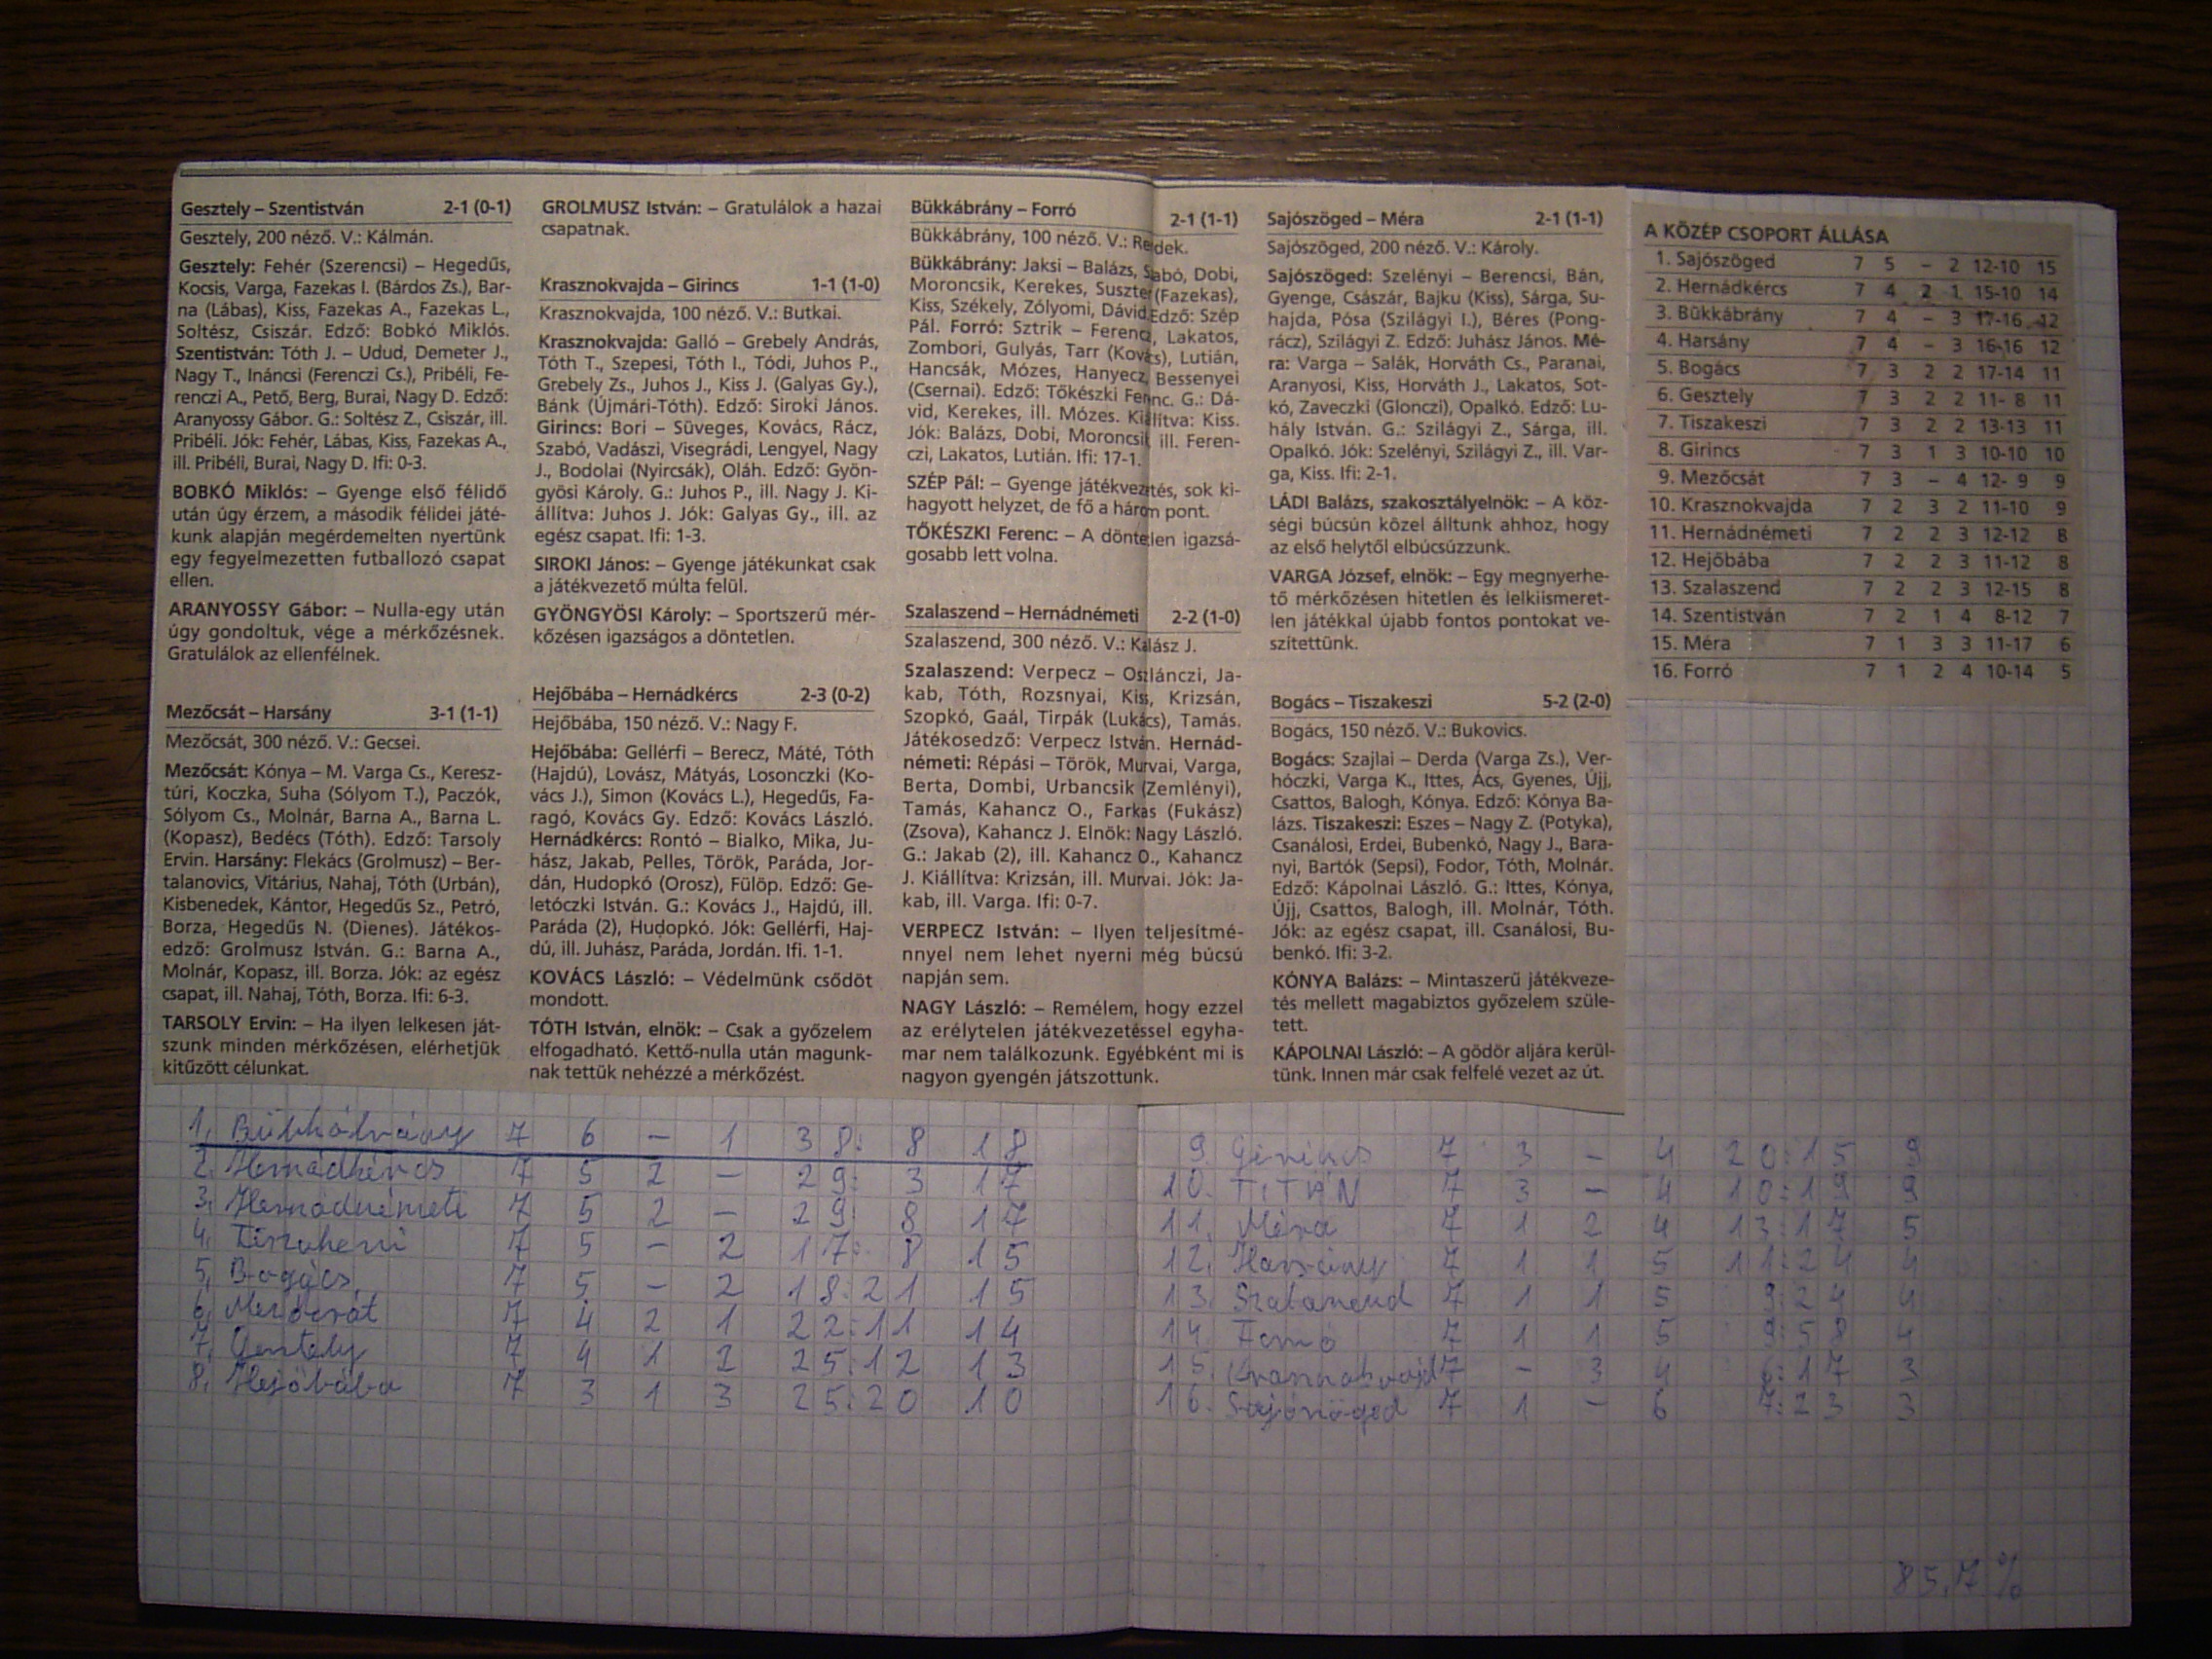 Gesztely – Szentistván 2-1 (0-1)
Gesztely, 200 néző. V.: Kálmán.
Gesztely: Fehér (Szerencsi) – Hegedűs,
Kocsis, Varga, Fazekas I. (Bárdos Zs.), Bar-
na (Lábas), Kiss, Fazekas A., Fazekas L.,
Soltész, Csiszár. Edző: Bobkó Miklós.
Szentistván: Tóth J. – Udud, Demeter J.,
Nagy T., Ináncsi (Ferenczi Cs.), Pribéli, Fe-
renczi A., Pető, Berg, Burai, Nagy D. Edző:
Aranyossy Gábor. G.: Soltész Z., Csiszár, ill.
Pribéli. Jók: Fehér, Lábas, Kiss, Fazekas A.,
ill. Pribéli, Burai, Nagy D. Ifi: 0-3.
BOBKÓ Miklós: – Gyenge első félidő
után úgy érzem, a második félidei játé-
kunk alapján megérdemelten nyertünk
egy fegyelmezetten futballozó csapat
ellen.
ARANYOSSY Gábor: – Nulla-egy után
úgy gondoltuk, vége a mérkőzésnek.
Gratulálok az ellenfélnek.
Mezőcsát – Harsány 3-1 (1-1)
Mezőcsát, 300 néző. V.: Gecsei.
Mezőcsát: Kónya – M. Varga Cs., Keresz-
túri, Koczka, Suha (Sólyom T.), Paczók,
Sólyom Cs., Molnár, Barna A., Barna L.
(Kopasz), Bedécs (Tóth). Edző: Tarsoly
Ervin. Harsány: Flekács (Grolmusz) – Ber-
talanovics, Vitárius, Nahaj, Tóth (Urbán),
Kisbenedek, Kántor, Hegedűs Sz., Petró,
Borza, Hegedűs N. (Dienes). Játékos-
edző: Grolmusz István. G.: Barna A.,
Molnár, Kopasz, ill. Borza. Jók: az egész
csapat, ill. Nahaj, Tóth, Borza. Ifi: 6-3.
TARSOLY Ervin: – Ha ilyen lelkesen ját-
szunk minden mérkőzésen, elérhetjük
kitűzött célunkat.
GROLMUSZ István: – Gratulálok a hazai
csapatnak.
Krasznokvajda – Girincs 1-1 (1-0)
Krasznokvajda, 100 néző. V.: Butkai.
Krasznokvajda: Galló – Grebely András,
Tóth T., Szepesi, Tóth I., Tódi, Juhos P.,
Grebely Zs., Juhos J., Kiss J. (Galyas Gy.),
Bánk (Újmári-Tóth). Edző: Siroki János.
Girincs: Bori – Süveges, Kovács, Rácz,
Szabó, Vadászi, Visegrádi, Lengyel, Nagy
J., Bodolai (Nyircsák), Oláh. Edző: Gyön-
gyösi Károly. G.: Juhos P., ill. Nagy J. Ki-
állítva: Juhos J. Jók: Galyas Gy., ill. az
egész csapat. Ifi: 1-3.
SIROKI János: – Gyenge játékunkat csak
a játékvezető múlta felül.
GYÖNGYÖSI Károly: – Sportszerű mér-
kőzésen igazságos a döntetlen.
Hejőbába – Hernádkércs 2-3 (0-2)
Hejőbába, 150 néző. V.: Nagy F.
Hejőbába: Gellérfi – Berecz, Máté, Tóth
(Hajdú), Lovász, Mátyás, Losonczki (Ko-
vács J.), Simon (Kovács L.), Hegedűs, Fa-
ragó, Kovács Gy. Edző: Kovács László.
Hernádkércs: Rontó – Bialko, Mika, Ju-
hász, Jakab, Pelles, Török, Paráda, Jor-
dán, Hudopkó (Orosz), Fülöp. Edző: Ge-
letóczki István. G.: Kovács J., Hajdú, ill.
Paráda (2), Hudopkó. Jók: Gellérfi, Haj-
dú, ill. Juhász, Paráda, Jordán. Ifi. 1-1.
KOVÁCS László: – Védelmünk csődöt
mondott.
TÓTH István, elnök: – Csak a győzelem
elfogadható. Kettő-nulla után magunk-
nak tettük nehézzé a mérkőzést.
Bükkábrány – Forró 2-1 (1-1)
Bükkábrány, 100 néző. V.: Redek.
Bükkábrány: Jaksi – Balázs, Szabó, Dobi,
Moroncsik, Kerekes, Suszter (Fazekas),
Kiss, Székely, Zólyomi, Dávid. Edző: Szép
Pál. Forró: Sztrik – Ferenczi, Lakatos,
Zombori, Gulyás, Tarr (Kovács), Lutián,
Hancsák, Mózes, Hanyecz, Bessenyei
(Csernai). Edző: Tőkészki Ferenc. G.: Dá-
vid, Kerekes, ill. Mózes. Kiállítva: Kiss.
Jók: Balázs, Dobi, Moroncsik, ill. Feren-
czi, Lakatos, Lutián. Ifi: 17-1.
SZÉP Pál: – Gyenge játékvezetés, sok ki-
hagyott helyzet, de fő a három pont.
TŐKÉSZKI Ferenc: – A döntetlen igazsá-
gosabb lett volna.
Szalaszend – Hernádnémeti 2-2 (1-0)
Szalaszend, 300 néző. V.: Kalász J.
Szalaszend: Verpecz – Oszlánczi, Ja-
kab, Tóth, Rozsnyai, Kiss, Krizsán,
Szopkó, Gaál, Tirpák (Lukács), Tamás.
Játékosedző: Verpecz István. Hernád-
németi: Répási – Török, Murvai, Varga,
Berta, Dombi, Urbancsik (Zemlényi),
Tamás, Kahancz O., Farkas (Fukász)
(Zsova), Kahancz J. Elnök: Nagy László.
G.: Jakab (2), ill. Kahancz O., Kahancz
J. Kiállítva: Krizsán, ill. Murvai. Jók: Ja-
kab, ill. Varga. Ifi: 0-7.
VERPECZ István: – Ilyen teljesítmé-
nnyel nem lehet nyerni még búcsú
napján sem.
NAGY László: – Remélem, hogy ezzel
az erélytelen játékvezetéssel egyha-
mar nem találkozunk. Egyébként mi is
nagyon gyengén játszottunk.
Sajószöged – Méra 2-1 (1-1)
Sajószöged, 200 néző. V.: Károly.
Sajószöged: Szelényi – Berencsi, Bán,
Gyenge, Császár, Bajku (Kiss), Sárga, Su-
hajda, Pósa (Szilágyi I.), Béres (Pong-
rácz), Szilágyi Z. Edző: Juhász János. Mé-
ra: Varga – Salák, Horváth Cs., Paranai,
Aranyosi, Kiss, Horváth J., Lakatos, Sot-
kó, Zaveczki (Glonczi), Opalkó. Edző: Lu-
hály István. G.: Szilágyi Z., Sárga, ill.
Opalkó. Jók: Szelényi, Szilágyi Z., ill. Var-
ga, Kiss. Ifi: 2-1.
LÁDI Balázs, szakosztályelnök: – A köz-
ségi búcsún közel álltunk ahhoz, hogy
az első helytől elbúcsúzzunk.
VARGA József, elnök: – Egy megnyerhe-
tő mérkőzésen hitetlen és lelkiismeret-
len játékkal újabb fontos pontokat ve-
szítettünk.
Bogács – Tiszakeszi 5-2 (2-0)
Bogács, 150 néző. V.: Bukovics.
Bogács: Szajlai – Derda (Varga Zs.), Ver-
hóczki, Varga K., Ittes, Ács, Gyenes, Újj,
Csattos, Balogh, Kónya. Edző: Kónya Ba-
lázs. Tiszakeszi: Eszes – Nagy Z. (Potyka),
Csanálosi, Erdei, Bubenkó, Nagy J., Bara-
nyi, Bartók (Sepsi), Fodor, Tóth, Molnár.
Edző: Kápolnai László. G.: Ittes, Kónya,
Újj, Csattos, Balogh, ill. Molnár, Tóth.
Jók: az egész csapat, ill. Csanálosi, Bu-
benkó. Ifi: 3-2.
KÓNYA Balázs: – Mintaszerű játékveze-
tés mellett magabiztos győzelem szüle-
tett.
KÁPOLNAI László: – A gödör aljára kerül-
tünk. Innen már csak felfelé vezet az út.
A KÖZÉP CSOPORT ÁLLÁSA
1. Sajószöged 7 5 – 2 12-10 15
2. Hernádkércs 7 4 2 1 15-10 14
3. Bükkábrány 7 4 – 3 17-16 12
4. Harsány 7 4 – 3 16-16 12
5. Bogács 7 3 2 2 17-14 11
6. Gesztely 7 3 2 2 11- 8 11
7. Tiszakeszi 7 3 2 2 13-13 11
8. Girincs 7 3 1 3 10-10 10
9. Mezőcsát 7 3 – 4 12- 9 9
10. Krasznokvajda 7 2 3 2 11-10 9
11. Hernádnémeti 7 2 2 3 12-12 8
12. Hejőbába 7 2 2 3 11-12 8
13. Szalaszend 7 2 2 3 12-15 8
14. Szentistván 7 2 1 4 8-12 7
15. Méra 7 1 3 3 11-17 6
16. Forró 7 1 2 4 10-14 5
1. Bükkábrány 7 6 – 1 38:8 18
2. Hernádkércs 7 5 2 – 29:3 17
3. Hernádnémeti 7 5 2 – 29:8 17
4. Tiszakeszi 7 5 – 2 17:8 15
5. Bogács 7 5 – 2 18:21 15
6. Mezőcsát 7 4 2 1 22:11 14
7. Gesztely 7 4 1 2 25:12 13
8. Hejőbába 7 3 1 3 25:20 10
9. Girincs 7 3 – 4 20:15 9
10. TITÁN 7 3 – 4 10:19 9
11. Méra 7 1 2 4 13:17 5
12. Harsány 7 1 1 5 11:24 4
13. Szalaszend 7 1 1 5 9:24 4
14. Forró 7 1 1 5 9:58 4
15. Krasznokvajd 7 – 3 4 6:17 3
16. Sajószöged 7 1 – 6 7:23 3
85,7%